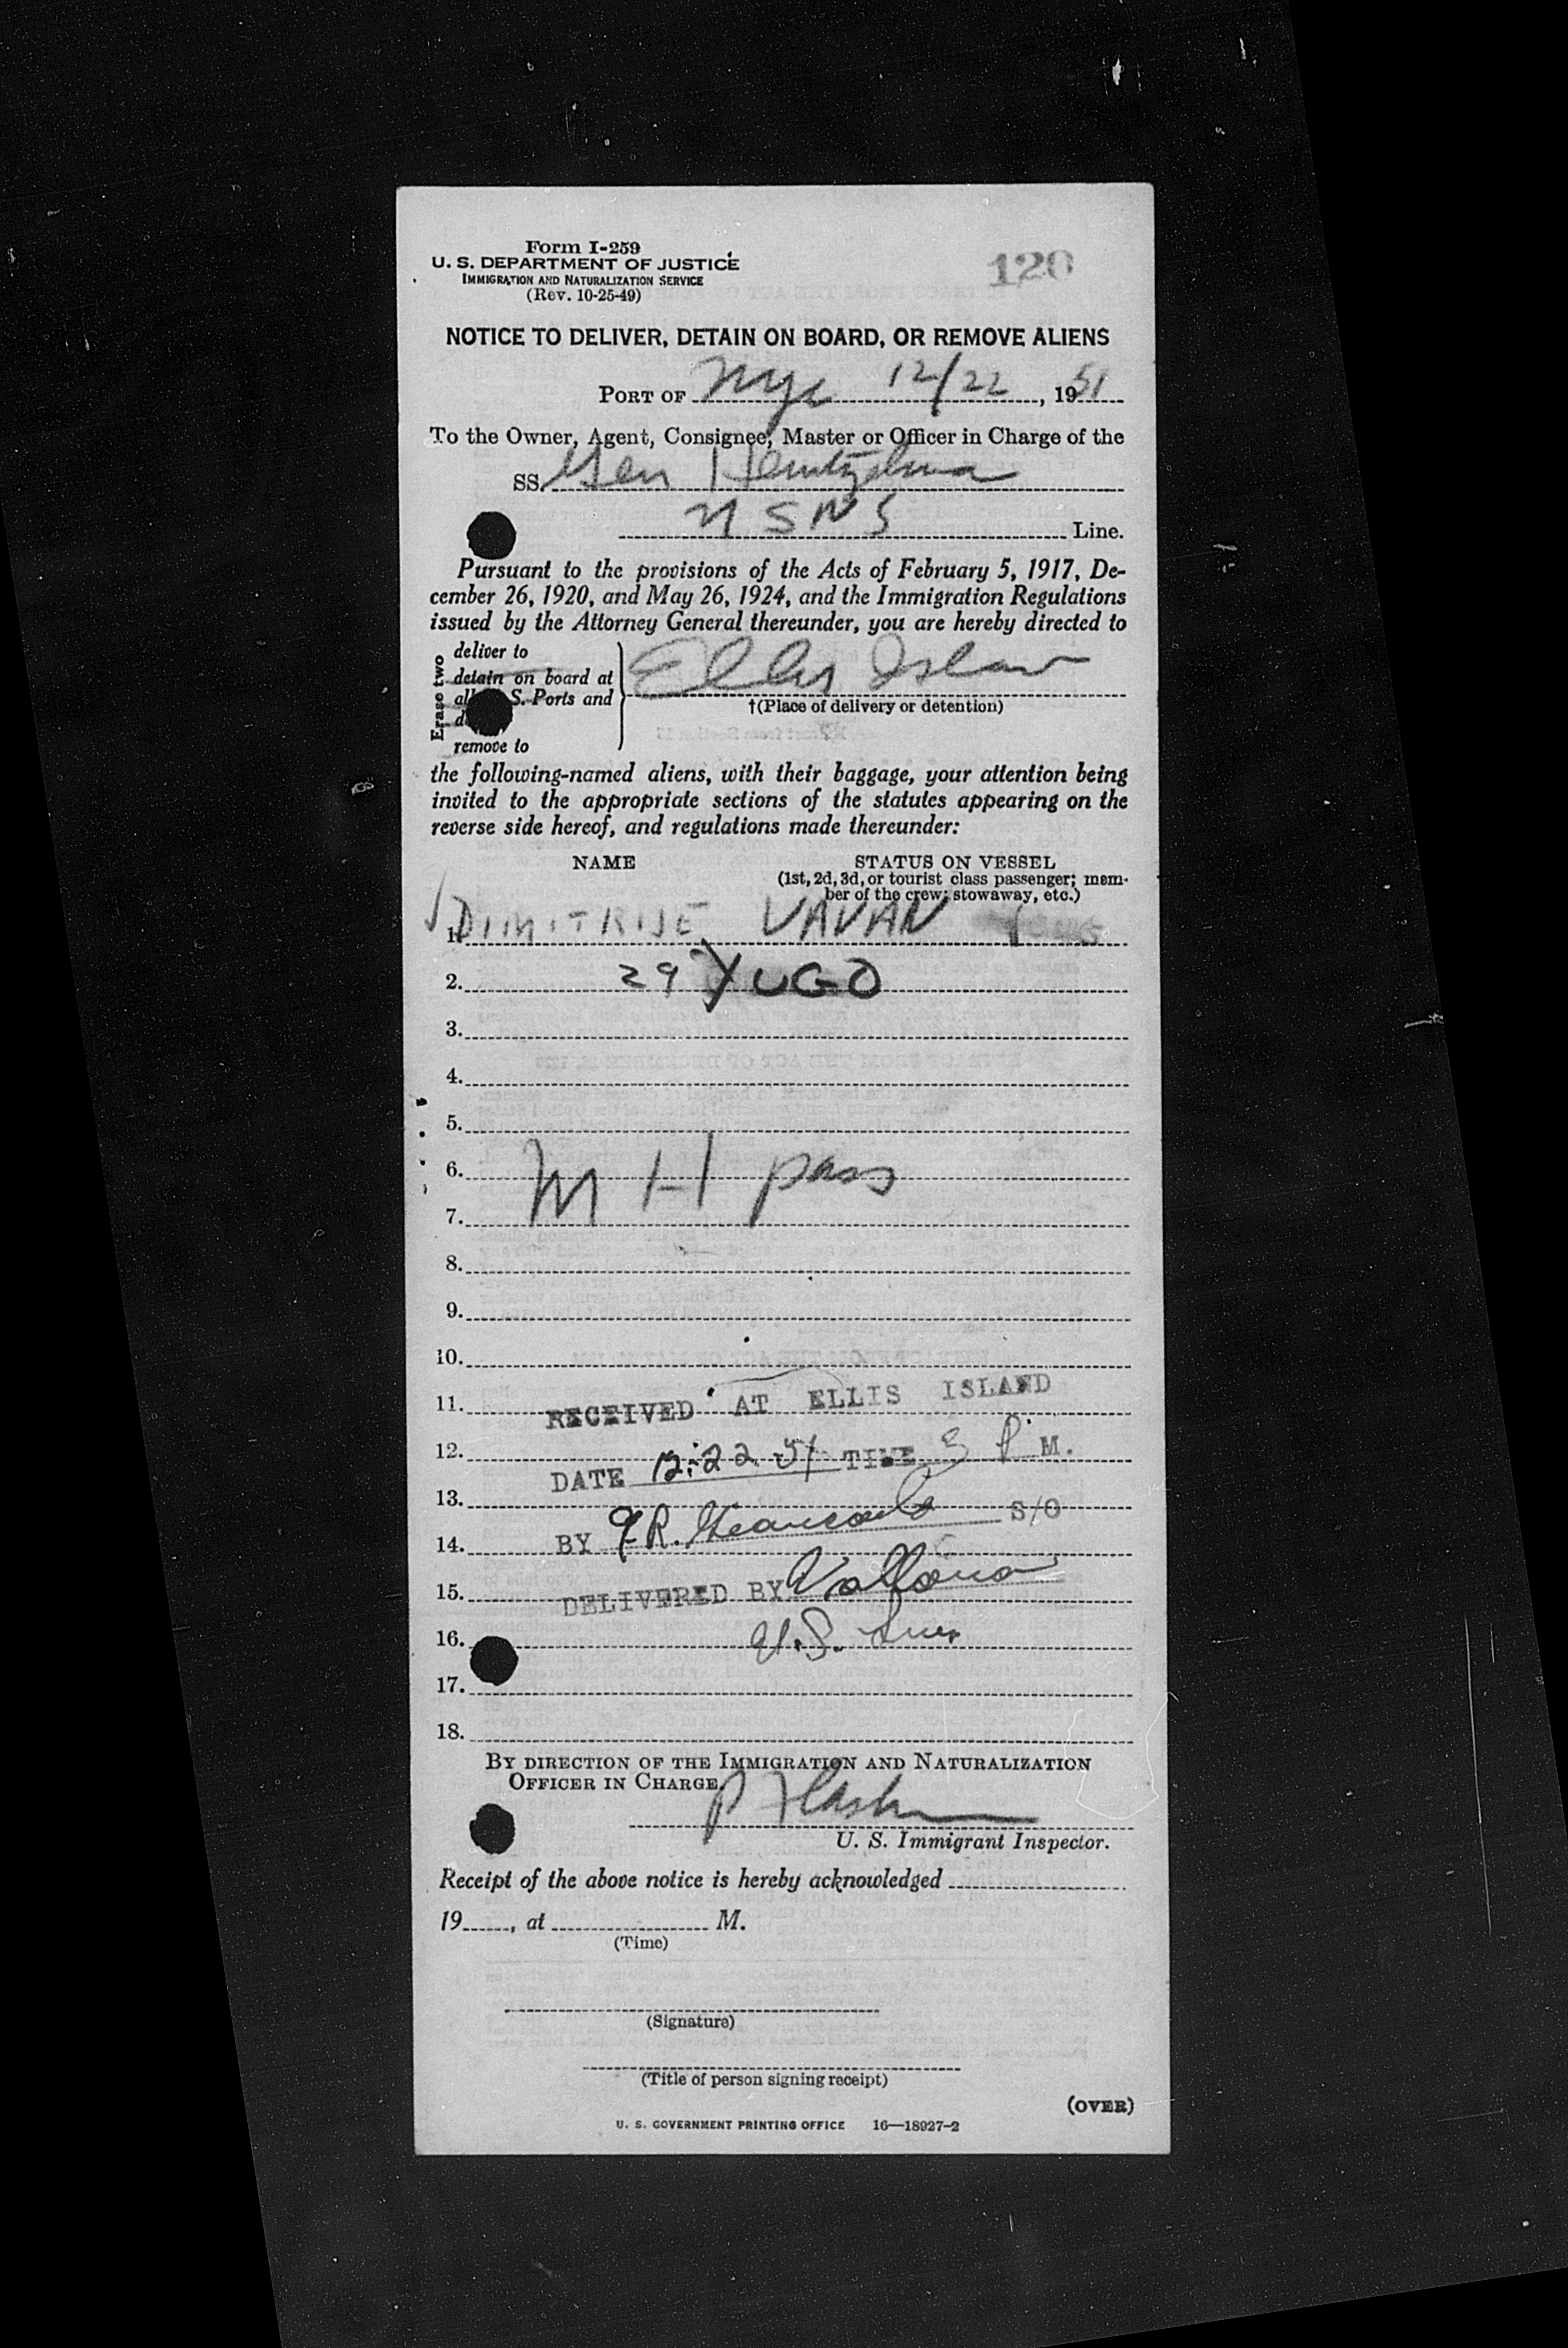 Form I-259
U. S. DEPARTMENT OF JUSTICE
IMMIGRATION AND NATURALIZATION SERVICE
(Rev. 10-25-49)
120
NOTICE TO DELIVER, DETAIN ON BOARD, OR REMOVE ALIENS
PORT OF NYC 12/22, 1951
To the Owner, Agent, Consignee, Master or Officer in Charge of the
SS. Gen
Line.
Pursuant to the provisions of the Acts of February 5, 1917, De-
cember 26, 1920, and May 26, 1924, and the Immigration Regulations
issued by the Attorney General thereunder, you are hereby directed to
Erase two
deliver to
detain on board at
S. Ports and
remove to
Ellis Island
†(Place of delivery or detention)
the following-named aliens, with their baggage, your attention being
invited to the appropriate sections of the statutes appearing on the
reverse side hereof, and regulations made thereunder:
NAME
STATUS ON VESSEL
(1st, 2d, 3d, or tourist class passenger; mem-
ber of the crew; stowaway, etc.)
1. DIMITRIJE VAVAN
2. 29 YUGO
3.
4.
5.
6. M H pass
7.
8.
9.
10.
11.
RECEIVED AT ELLIS ISLAND
12.
DATE 12-22-51 TIME 3 P M.
13.
BY S/O
14.
15.
DELIVERED BY
16.
U.S.
17.
18.
BY DIRECTION OF THE IMMIGRATION AND NATURALIZATION
OFFICER IN CHARGE.
U. S. Immigrant Inspector.
Receipt of the above notice is hereby acknowledged
19, at M.
(Time)
(Signature)
(Title of person signing receipt)
(OVER)
U. S. GOVERNMENT PRINTING OFFICE 16—18927-2